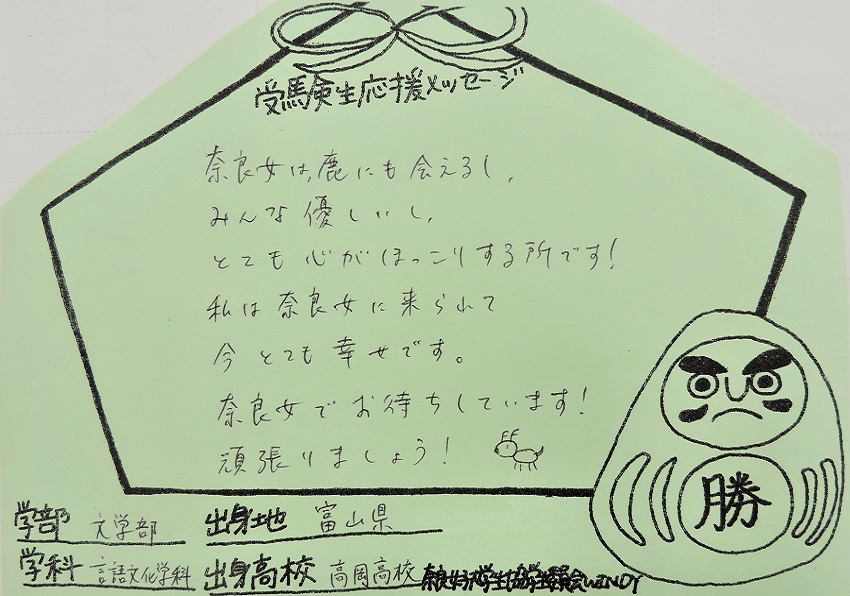 受験生応援メッセージ
奈良女は、鹿にも会えるし、
みんな優しいし、
とても心がほっこりする所です!
私は奈良女に来られて
今とても幸せです。
奈良女でお待ちしています!
頑張りましょう!
勝
学部 文学部 出身地 富山県
学科 言語文化学科 出身高校 高岡高校
WENDY